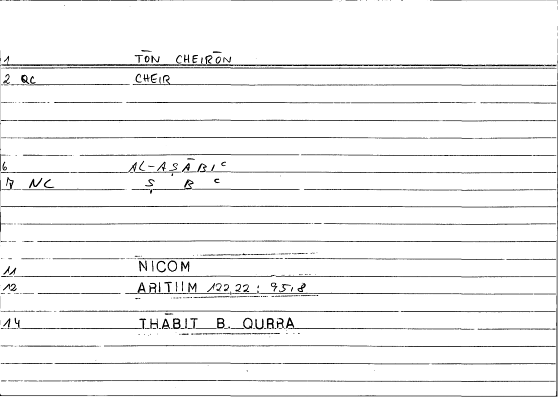 1 TŌN CHEIRŌN
2 QC CHEIR
6 AL-AṢĀBIᶜ
7 NC Ṣ B ᶜ
11 NICOM
12 ARITIIM 122,22 : 95,8
14 THĀBIT B. QURRA